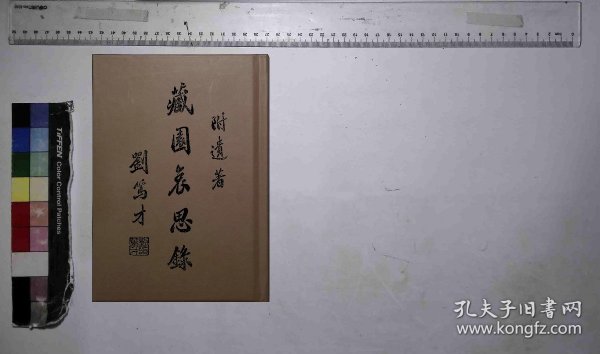 附遺著
藏園哀思錄
劉篤才
TIFFEN Color Control Patches
孔夫子旧书网
www.kongfz.com